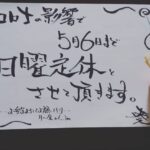 コロナの影響で
5月6日まで
日曜定休と
させて頂きます。